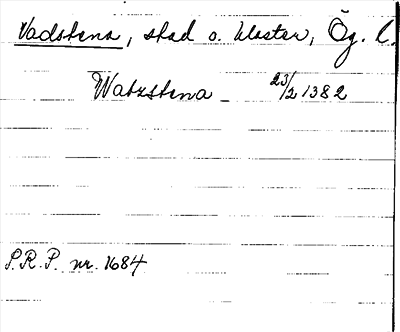 Vadstena, stad o. kloster, Ög. l.
Watzstena 23/2 1382
S.R.P. nr. 1684